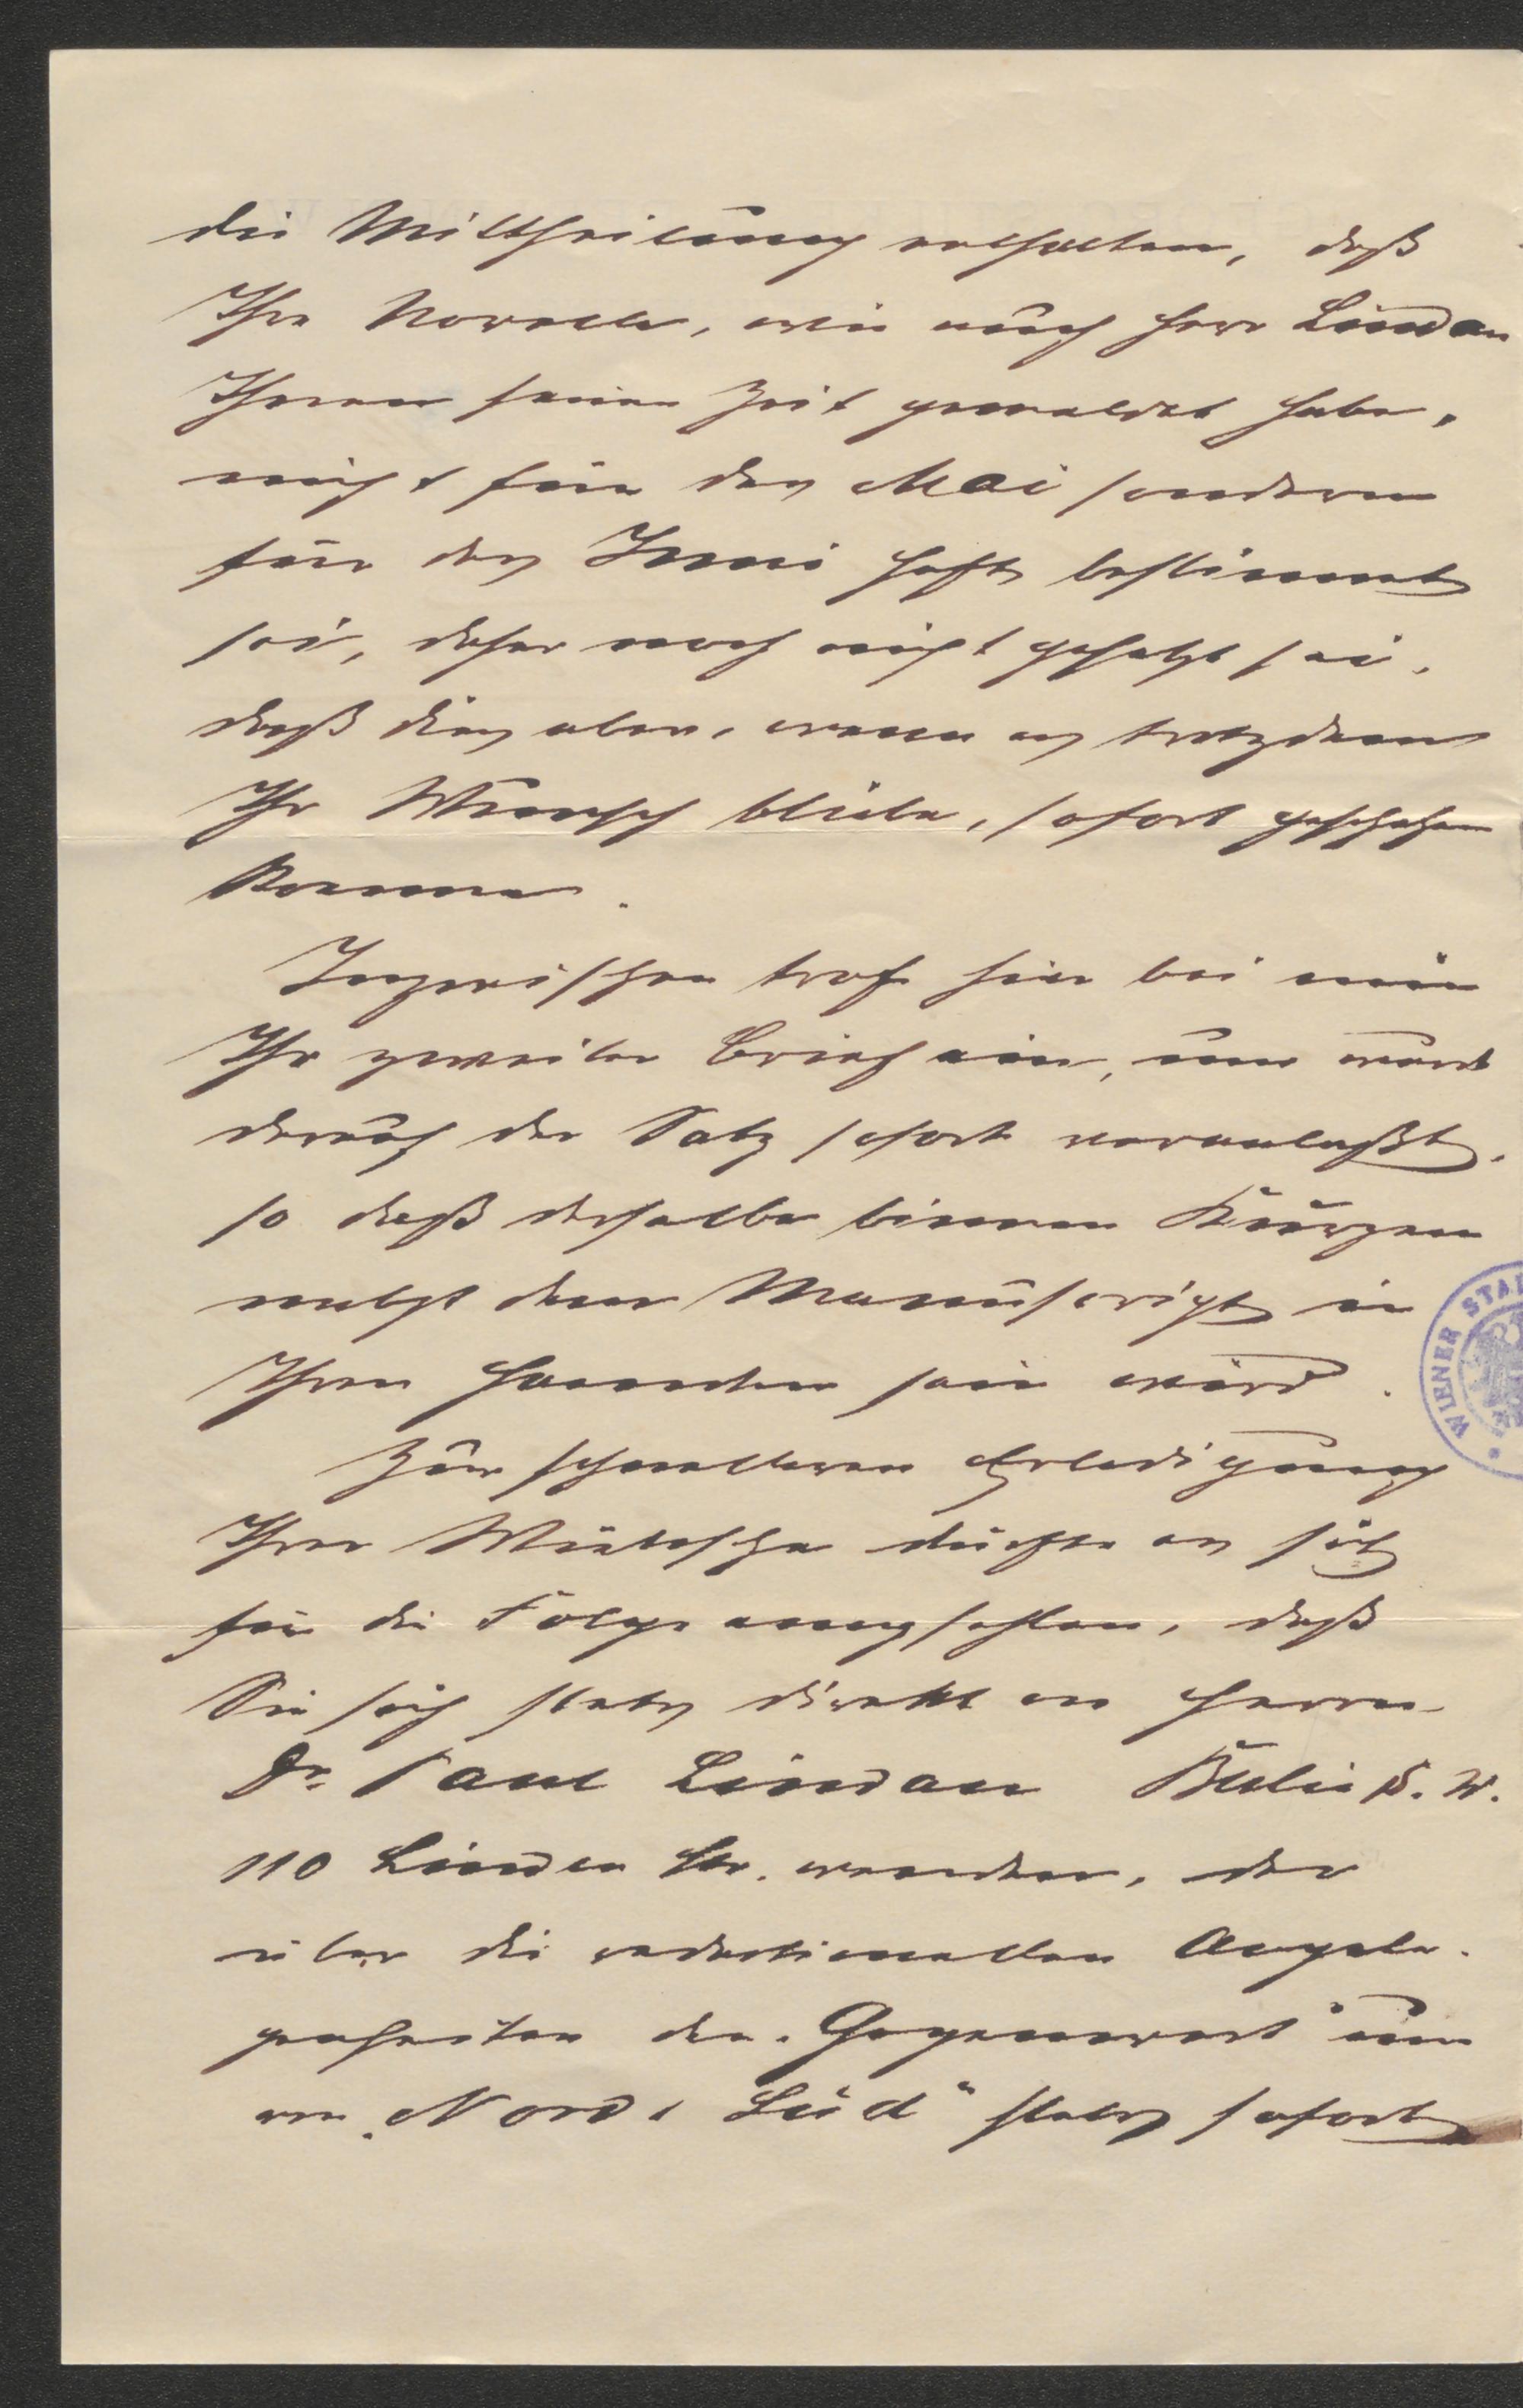 die Mittheilung enthalten, daß
Ihre Novelle, wie auch Herr Lindau
Ihnen seiner Zeit gemeldet habe,
nicht für das Mai sondern
für das Juni Heft bestimmt
sei, daher noch nicht gesetzt sei,
daß dies aber, wenn es trotzdem
Ihr Wunsch bliebe, sofort geschehen
könne.
Inzwischen traf hier bei mir
Ihr zweiter Brief ein, und ward
darauf der Satz sofort veranlaßt,
so daß derselbe binnen Kurzem
nebst dem Manuscript in
Ihren Händen sein wird.
Zur schnelleren Erledigung
Ihrer Wünsche dürfte es sich
für die Folge empfehlen, daß
Sie sich stets direkt an Herrn
Dr. Paul Lindau Berlin S. W.
110 Linden Str. wenden, der
über die redactionellen Angele-
genheiten der „Gegenwart" und
von „Nord & Süd" stets sofort
WIENER STA